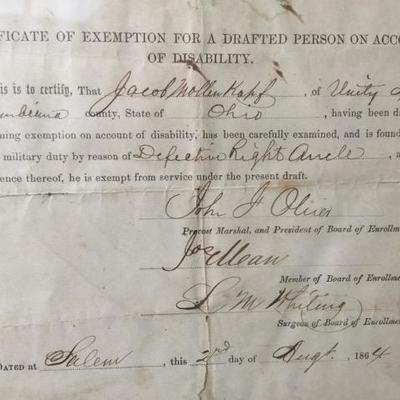 FICATE OF EXEMPTION FOR A DRAFTED PERSON ON ACCO
OF DISABILITY.
is is to certify, That Jacob Mollenkopf, of Unity
county, State of Ohio, having been d
ning exemption on account of disability, has been carefully examined, and is found
military duty by reason of Defective Right Ancle, a
ence thereof, he is exempt from service under the present draft.
John F Oliver
Provost Marshal, and President of Board of Enrollm
Member of Board of Enrollmen
S M Whiting
Surgeon of Board of Enrollme
DATED at Salem, this 2nd day of Augt. 1864